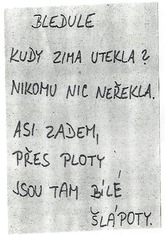 BLEDULE
KUDY ZIMA UTEKLA?
NIKOMU NIC NEŘEKLA.
ASI ZADEM,
PŘES PLOTY
JSOU TAM BÍLÉ
ŠLÁPOTY.